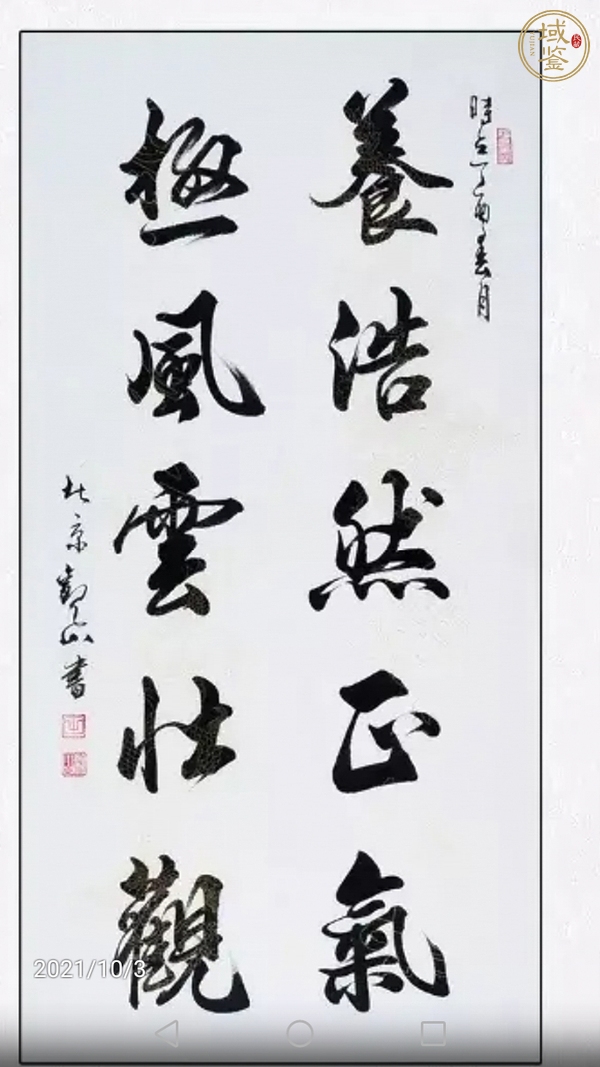 時在丁酉年春月
養浩然正氣
極風雲壯觀
北京觀山書
域鉴
2021/10/3